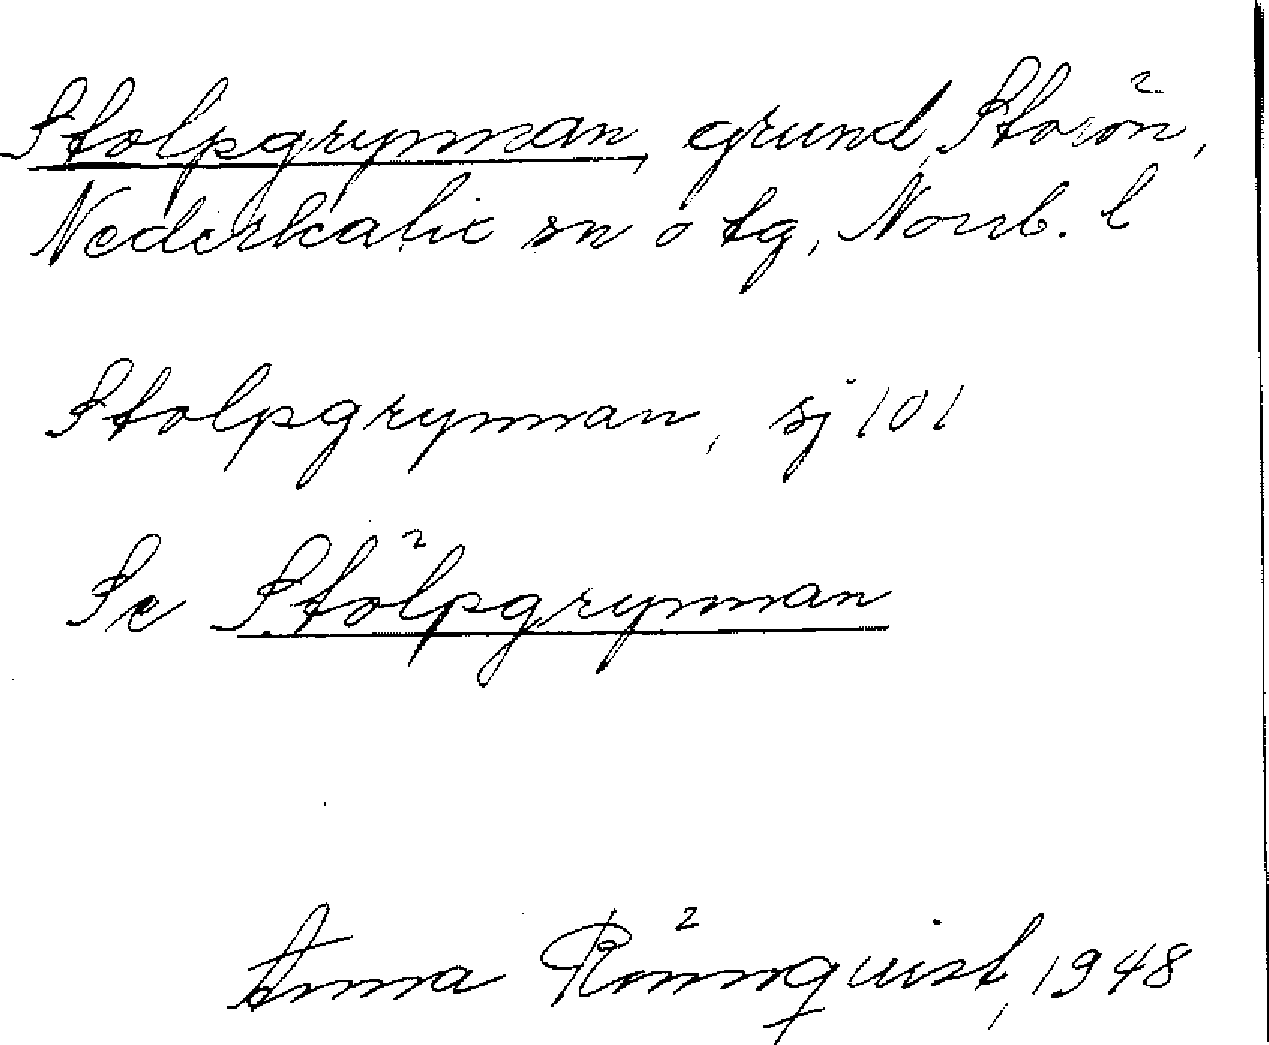 Stolpgrynnan, grund, Storön,
Nederkalix sn o tg, Norrb. l
Stolpgrynnan, sj 101
Se Stölpgrynnan
Anna Rönnqvist, 1948